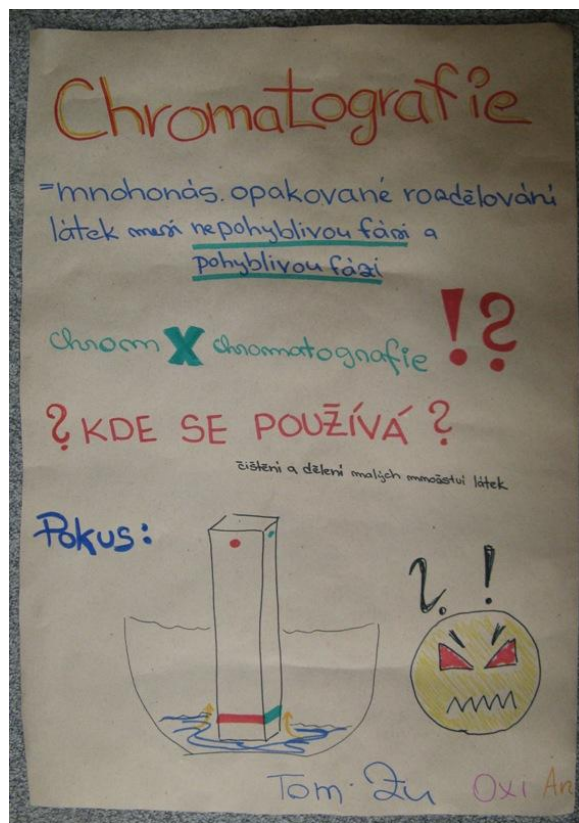 Chromatografie
=mnohonás. opakované rozdělování
látek mezi nepohyblivou fázi a
pohyblivou fázi
chrom X chromatografie !?
? KDE SE POUŽÍVÁ ?
čištění a dělení malých množství látek
Pokus:
? !
Tom. Zu Oxi An